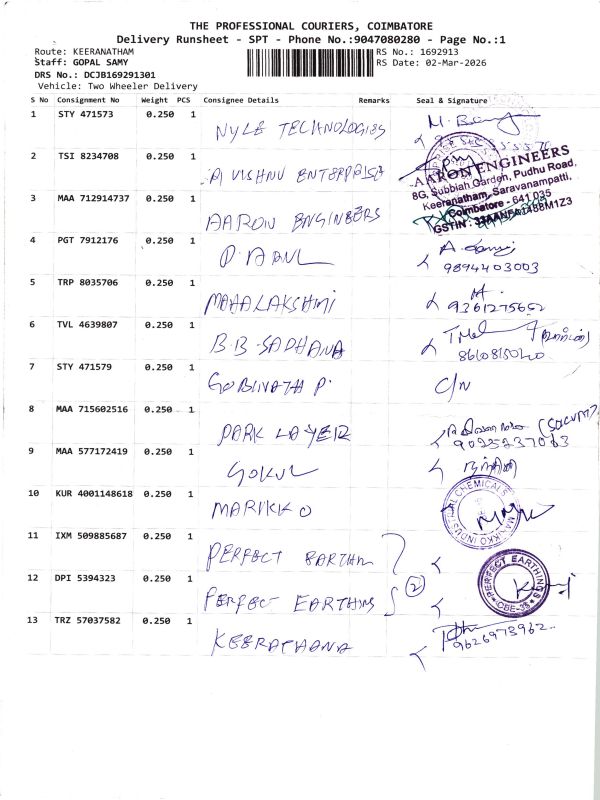 THE PROFESSIONAL COURIERS, COIMBATORE
Delivery Runsheet - SPT - Phone No.:9047080280 - Page No.:1
Route: KEERANATHAM RS No.: 1692913
Staff: GOPAL SAMY RS Date: 02-Mar-2026
DRS No.: DCJB169291301
Vehicle: Two Wheeler Delivery
S No Consignment No Weight PCS Consignee Details Remarks Seal & Signature
1 STY 471573 0.250 1 NYLE TECHNOLOGIES
2 TSI 8234708 0.250 1 VISHNU ENTERPRISE
3 MAA 712914737 0.250 1 AARON ENGINEERS
AARON ENGINEERS
8G, Subbiah Garden, Pudhu Road,
Keeranatham, Saravanampatti,
Coimbatore - 641 035
4 PGT 7912176 0.250 1 P. ABNL
9894403003
5 TRP 8035706 0.250 1 MAHALAKSHMI
9361275652
6 TVL 4639807 0.250 1 B.B. SADHANA
7 STY 471579 0.250 1 GOBINATH P. C/N
8 MAA 715602516 0.250 1 PARK LAYER
9025237063
9 MAA 577172419 0.250 1 GOKUL
10 KUR 4001148618 0.250 1 MARIKKO
MARIKKO INDUSTRIAL CHEMICALS
11 IXM 509885687 0.250 1 PERFECT EARTHIN
12 DPI 5394323 0.250 1 PERFECT EARTHINS (2)
PERFECT EARTHINGS
CBE-35
13 TRZ 57037582 0.250 1 KEERATHANA
9626973962